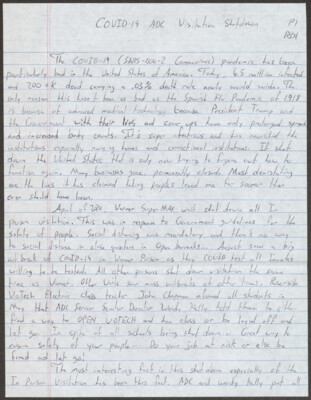 COVID-19 ADC Visitation Shutdown P1
The COVID-19 (SARS-COV-2 Coronavirus) pandemic has been
particularly bad in the United States of America. Today 6.5 million infected
and 200+K dead carrying a .03% death rate nearly world widen. The
only reason this hasn't been as bad as the Spanish Flu Pandemic of 1918
is because of advanced medical technology because President Trump and
the Government with their lies and cover ups have only prolonged spread
and increased body counts. It's super infectious and has ravished the
institutions especially nursing homes and correctional institutions. It shut
down the United States that is only now trying to figure out how to
function again. Many businesses gone permanently closed. Most devastating
are the lives it has claimed taking people's loved ones far sooner than
ever should have been.
April of 2020 Varner SuperMAX unit shut down all In
person visitation. This was in response to Government guidelines for the
safety of people. Social distancing was mandatory and there's no way
to social distance in close quarters in Open barracks. August saw a big
outbreak of COVID-19 in Varner Prison as they COULD test all Inmates
willing to be tested. All other prisons shut down visitation the same
time as Varner. Other Units saw mass outbreaks at other times. Riverside
VoTech Electric class teacher John Chapman informed all students in
May that ADC Senior Senator Director Wendy Kelly told them to either
find a way to OPEN VOTECH and have class or be layed off and
let go. In spite of all schools being shut down. Great way to
ensure safety of your people. Do your job at risk or else be
fired and let go!
The most interesting fact in this shut down especially of the
In Person Visitation has been this fact. ADC and Wendy Kelly put all